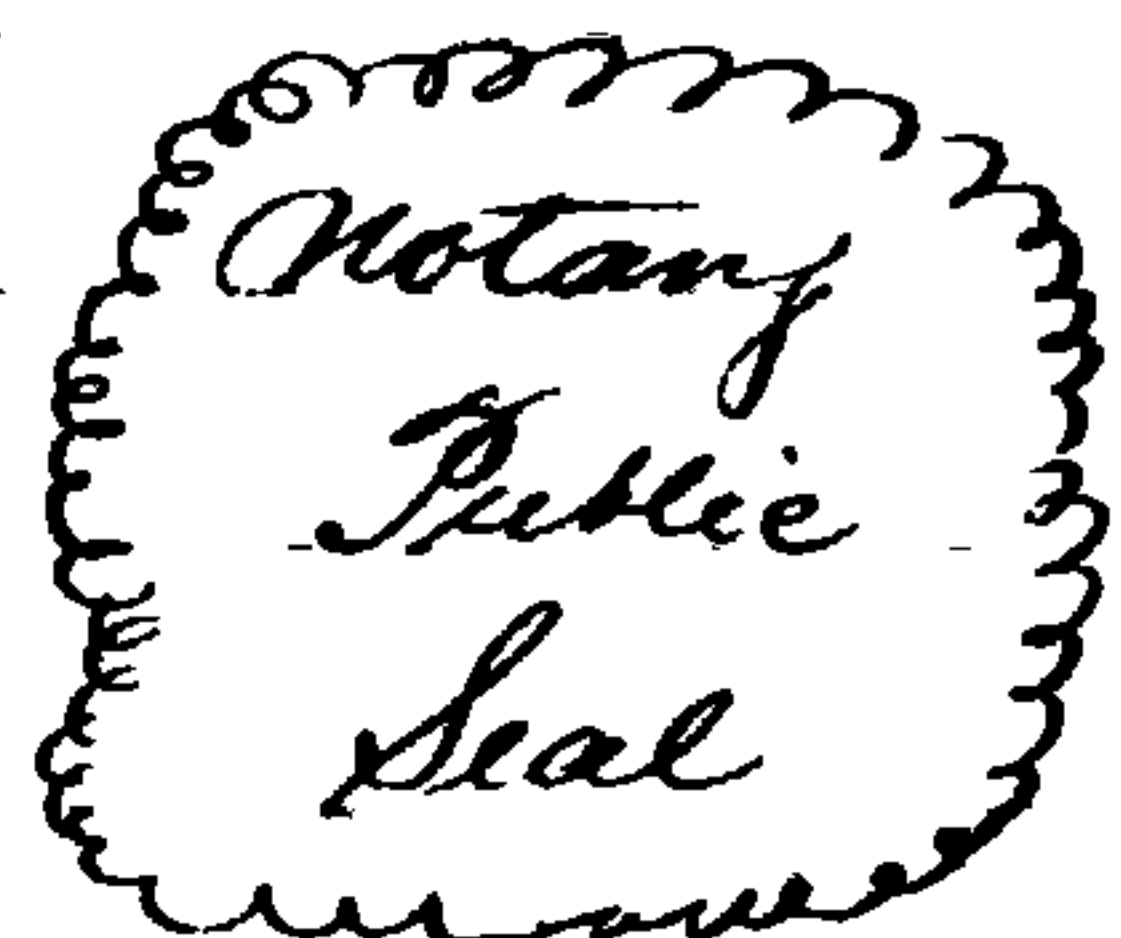 Notary
Public
Seal